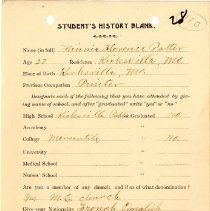 28 10
STUDENT'S HISTORY BLANK
Name (in full) Minnie Florence Potter
Age 27 Residence Kirksville, Mo.
Place of Birth Kirksville, Mo.
Previous Occupation Printer
Designate each of the following that you have attended by giving name of school, and after "graduated" write "yes" or "no"
High School Kirksville Public Graduated No
Academy "
College Mercantile " No.
University "
Medical School "
Nurses' School "
Are you a member of any church, and if so, of what denomination?
Yes M.E. church
Give your Nationality French English